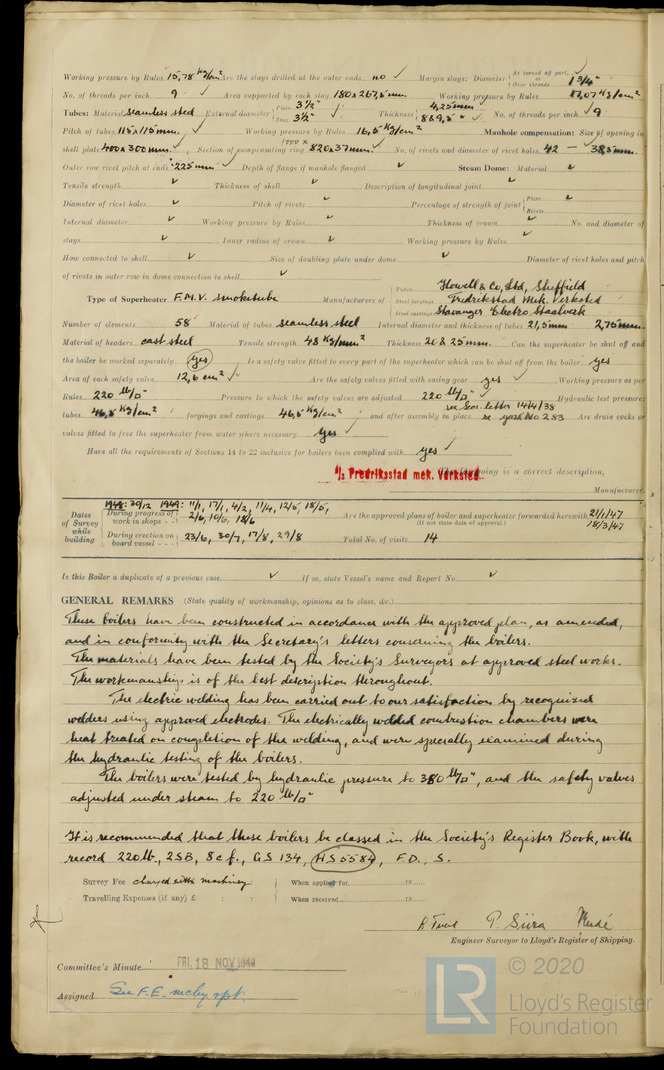 Working pressure by Rules 15,78 Kg/cm² Are the stays drilled at the outer ends no ✓ Margin stays: Diameter { At turned off part, or Over threads 1 3/4"
No. of threads per inch 9 ✓ Area supported by each stay 180 x 267,5 mm Working pressure by Rules 17,07 Kg/cm²
Tubes: Material seamless steel External diameter { Plain 3½" Stay 3½" ✓ Thickness { 4,25 mm No. of threads per inch ✓ 9
Pitch of tubes 115 x 115 mm. ✓ Working pressure by Rules 16,5 Kg/cm² Manhole compensation: Size of opening in
shell plate 400 x 300 mm. ✓ Section of compensating ring 1000 x 820 x 37 mm. ✓ No. of rivets and diameter of rivet holes 42 — 38,5 mm.
Outer row rivet pitch at ends 225 mm ✓ Depth of flange if manhole flanged ✓ Steam Dome: Material ✓
Tensile strength ✓ Thickness of shell ✓ Description of longitudinal joint ✓
Diameter of rivet holes ✓ Pitch of rivets ✓ Percentage of strength of joint { Plate ✓ Rivets
Internal diameter ✓ Working pressure by Rules ✓ Thickness of crown ✓ No. and diameter of
stays ✓ Inner radius of crown ✓ Working pressure by Rules ✓
How connected to shell ✓ Size of doubling plate under dome ✓ Diameter of rivet holes and pitch
of rivets in outer row in dome connection to shell ✓
Type of Superheater F.M.V. smoketube Manufacturers of { Tubes Howell & Co, Ltd, Sheffield
Steel forgings Fredrikstad Mek. Verksted
Steel castings Stavanger Electro Staalverk
Number of elements 58 Material of tubes seamless steel Internal diameter and thickness of tubes 21,5 mm 2,75 mm.
Material of headers cast steel Tensile strength 48 Kg/mm² Thickness 20 & 25 mm. Can the superheater be shut off and
the boiler be worked separately yes Is a safety valve fitted to every part of the superheater which can be shut off from the boiler yes
Area of each safety valve 12,6 cm² ✓ Are the safety valves fitted with easing gear yes ✓ Working pressure as per
Rules 220 lb/□" Pressure to which the safety valves are adjusted 220 lb/□" ✓ Hydraulic test pressure:
see Sec. letter 14/4/38
tubes 46,5 Kg/cm² forgings and castings 46,5 Kg/cm² and after assembly in place re yard No. 283 Are drain cocks or
valves fitted to free the superheater from water where necessary yes ✓
Have all the requirements of Sections 14 to 22 inclusive for boilers been complied with yes ✓
The foregoing is a correct description,
A/S Fredriksstad mek. Verksted.
Manufacturer.
Dates of Survey while building { During progress of work in shops - - } 1948: 30/12 1949: 11/1, 17/1, 4/2, 11/4, 12/5, 18/5, 2/6, 10/6, 18/6
Are the approved plans of boiler and superheater forwarded herewith 21/1/47 18/3/47
(If not state date of approval.)
{ During erection on board vessel - - - } 23/6, 30/7, 17/8, 29/8 Total No. of visits 14
Is this Boiler a duplicate of a previous case ✓ If so, state Vessel's name and Report No. ✓
GENERAL REMARKS (State quality of workmanship, opinions as to class, &c.)
These boilers have been constructed in accordance with the approved plan, as amended,
and in conformity with the Secretary's letters concerning the boilers.
The materials have been tested by the Society's Surveyors at approved steel works.
The workmanship is of the best description throughout.
The electric welding has been carried out to our satisfaction by recognized
welders using approved electrodes. The electrically welded combustion chambers were
heat treated on completion of the welding, and were specially examined during
the hydraulic testing of the boilers.
The boilers were tested by hydraulic pressure to 380 lb/□", and the safety valves
adjusted under steam to 220 lb/□"
It is recommended that these boilers be classed in the Society's Register Book, with
record 220 lb., 2SB, 8 c f., GS 134, HS 5584, F.D., S.
Survey Fee charged with machinery When applied for, 19
Travelling Expenses (if any) £ : : When received, 19
P. Siira
Engineer Surveyor to Lloyd's Register of Shipping.
Committee's Minute FRI. 18 NOV 1949
Assigned See F.E. mchy rpt
LR © 2020
Lloyd's Register
Foundation